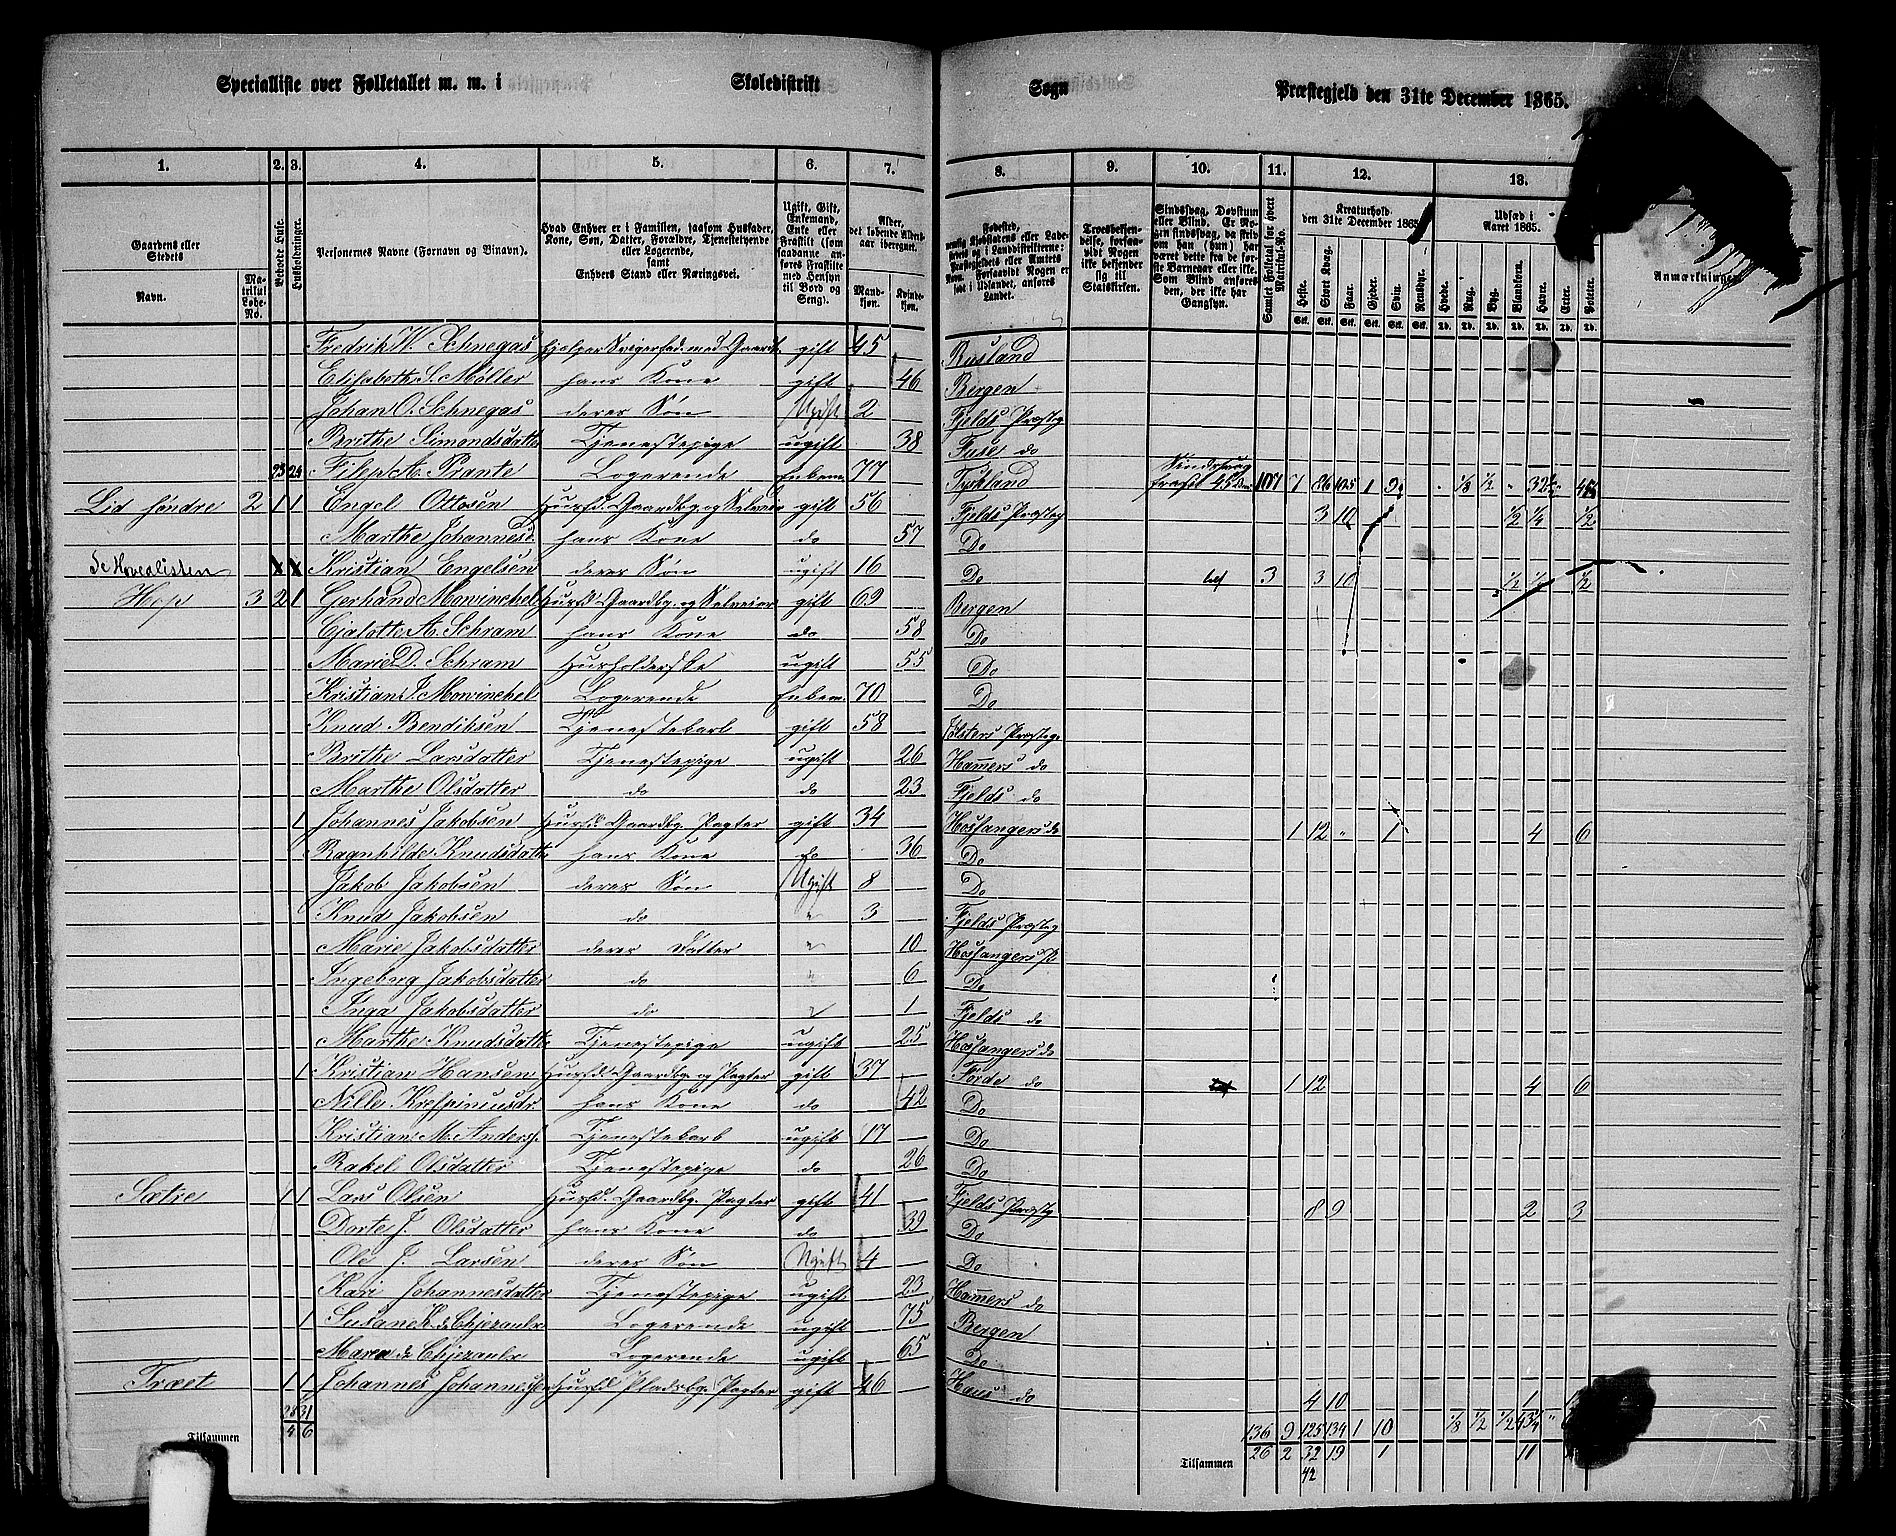 Specialliste over Folketallet m. m. i Skoledistrikt Sogn Præstegjeld den 31te December 1865.
1. 2. 3. 4. 5. 6. 7. 8. 9. 10. 11. 12. 13.
Gaardens eller Stedets Navn. Matrikul Løbe-No. Beboede Huse. Husholdninger. Personernes Navne (Fornavn og Binavn). Hvad Enhver er i Familien, saasom Husfader, Kone, Søn, Datter, Forældre, Tjenestetyende eller Logerende, samt Enhvers Stand eller Næringsvei. Ugift, Gift, Enkemand, Enke eller Fraskilt (som saadanne anføres Fraskilte med Hensyn til Bord og Seng). Alder, det løbende Aldersaar iberegnet. Mandkjøn. Kvindekjøn.
Fødested, nemlig Kjøbstadens eller Ladestedets eller i Landdistrikterne: Præstegjeldets eller Amtets Navn. Forsaavidt Nogen er født i Udlandet, anføres Landet. Troesbekjendelse, forsaavidt Nogen ikke bekjender sig til Statskirken. Samlet Folketal for hvert Matrikul-No. Kreaturhold den 31te December 1865. Udsæd i Aaret 1865. Anmærkninger
Heste. Stort Kvæg. Faar. Gjeder. Svin. Rensdyr. Hvede. Rug. Byg. Blandkorn. Havre. Erter. Poteter.
Fredrik W. Schnegas gift 45 Rusland
Elisabeth S. Møller hans Kone gift 46 Bergen
Johan O. Schnegas deres Søn Ugift 2 Fjelds Præstg
Brithe Simondsdatter Tjenestepige ugift 38 Fuse do
23 24 Logerende Enkem. 77 Tyskland 107
Lid søndre 2 1 1 Engel Ottosen Husfd. Gaardbg. og Selveier gift 56 Fjelds Præstg 3 10 1/2 1/4 1/2
Marthe Johannesd. hans Kone do 57 Do
Kristian Engelsen deres Søn ugift 16 Do 3 3 10 1/2
Hop 3 2 1 Gerhard Mowinchel Husfd Gaardbg. og Selveier gift 69 Bergen
A. Schram hans Kone do 58 Do
Marie D. Schram Husholderske ugift 55 Do
Kristian J. Mowinchel Logerende Enkem. 70 Do
Knud Bendiksen Tjenestekarl gift 58 Jølsters Præsteg
Brithe Larsdatter Tjenestepige ugift 26 Hamers do
Marthe Olsdatter do do 23 Fjelds do
1 Johannes Jakobsen Husfd. Gaardbg. Pagter gift 34 Hosangers do 1 12 " 1 4 6
Ragnhilde Knudsdatter hans Kone do 36 Do
Jakob Jakobsen deres Søn Ugift 8 Do
Knud Jakobsen do " 3 Fjelds Præsteg
Marie Jakobsdatter deres Datter " 10 Hosangers
Ingeborg Jakobsdatter do " 6 Do
Inga Jakobsdatter do " 1 Fjelds do
Marthe Knudsdatter Tjenestepige ugift 25 Hosangers do
1 Kristian Hansen Husfd. Gaardbg. og Pagter gift 37 Førde do 1 12 4 6
Nille hans Kone do 42 Do
Kristian M. Anders. Tjenestekarl ugift 17 Do
Rakel Olsdatter Tjenestepige do 26 Do
Sætre 1 1 Lars Olsen Husfd. Gaardbg. Pagter gift 41 Fjelds Præstg 8 9 2 3
Dorte J. Olsdatter hans Kone do 39 Do
Ole J. Larsen deres Søn Ugift 4 Do
Kari Johannesdatter Tjenestepige ugift 23 Hamers do
1 Logerende ugift 75 Bergen
Logerende ugift 65 Do
Træet 1 1 Johannes Johannesen Husfd. Pladsbg. Pagter gift 46 Haus do 4 10 1
Tilsammen 28 31 136 9 125 134 1 10 1/8 1/2 1/2
4 6 Tilsammen 26 2 32 19 1 11
42